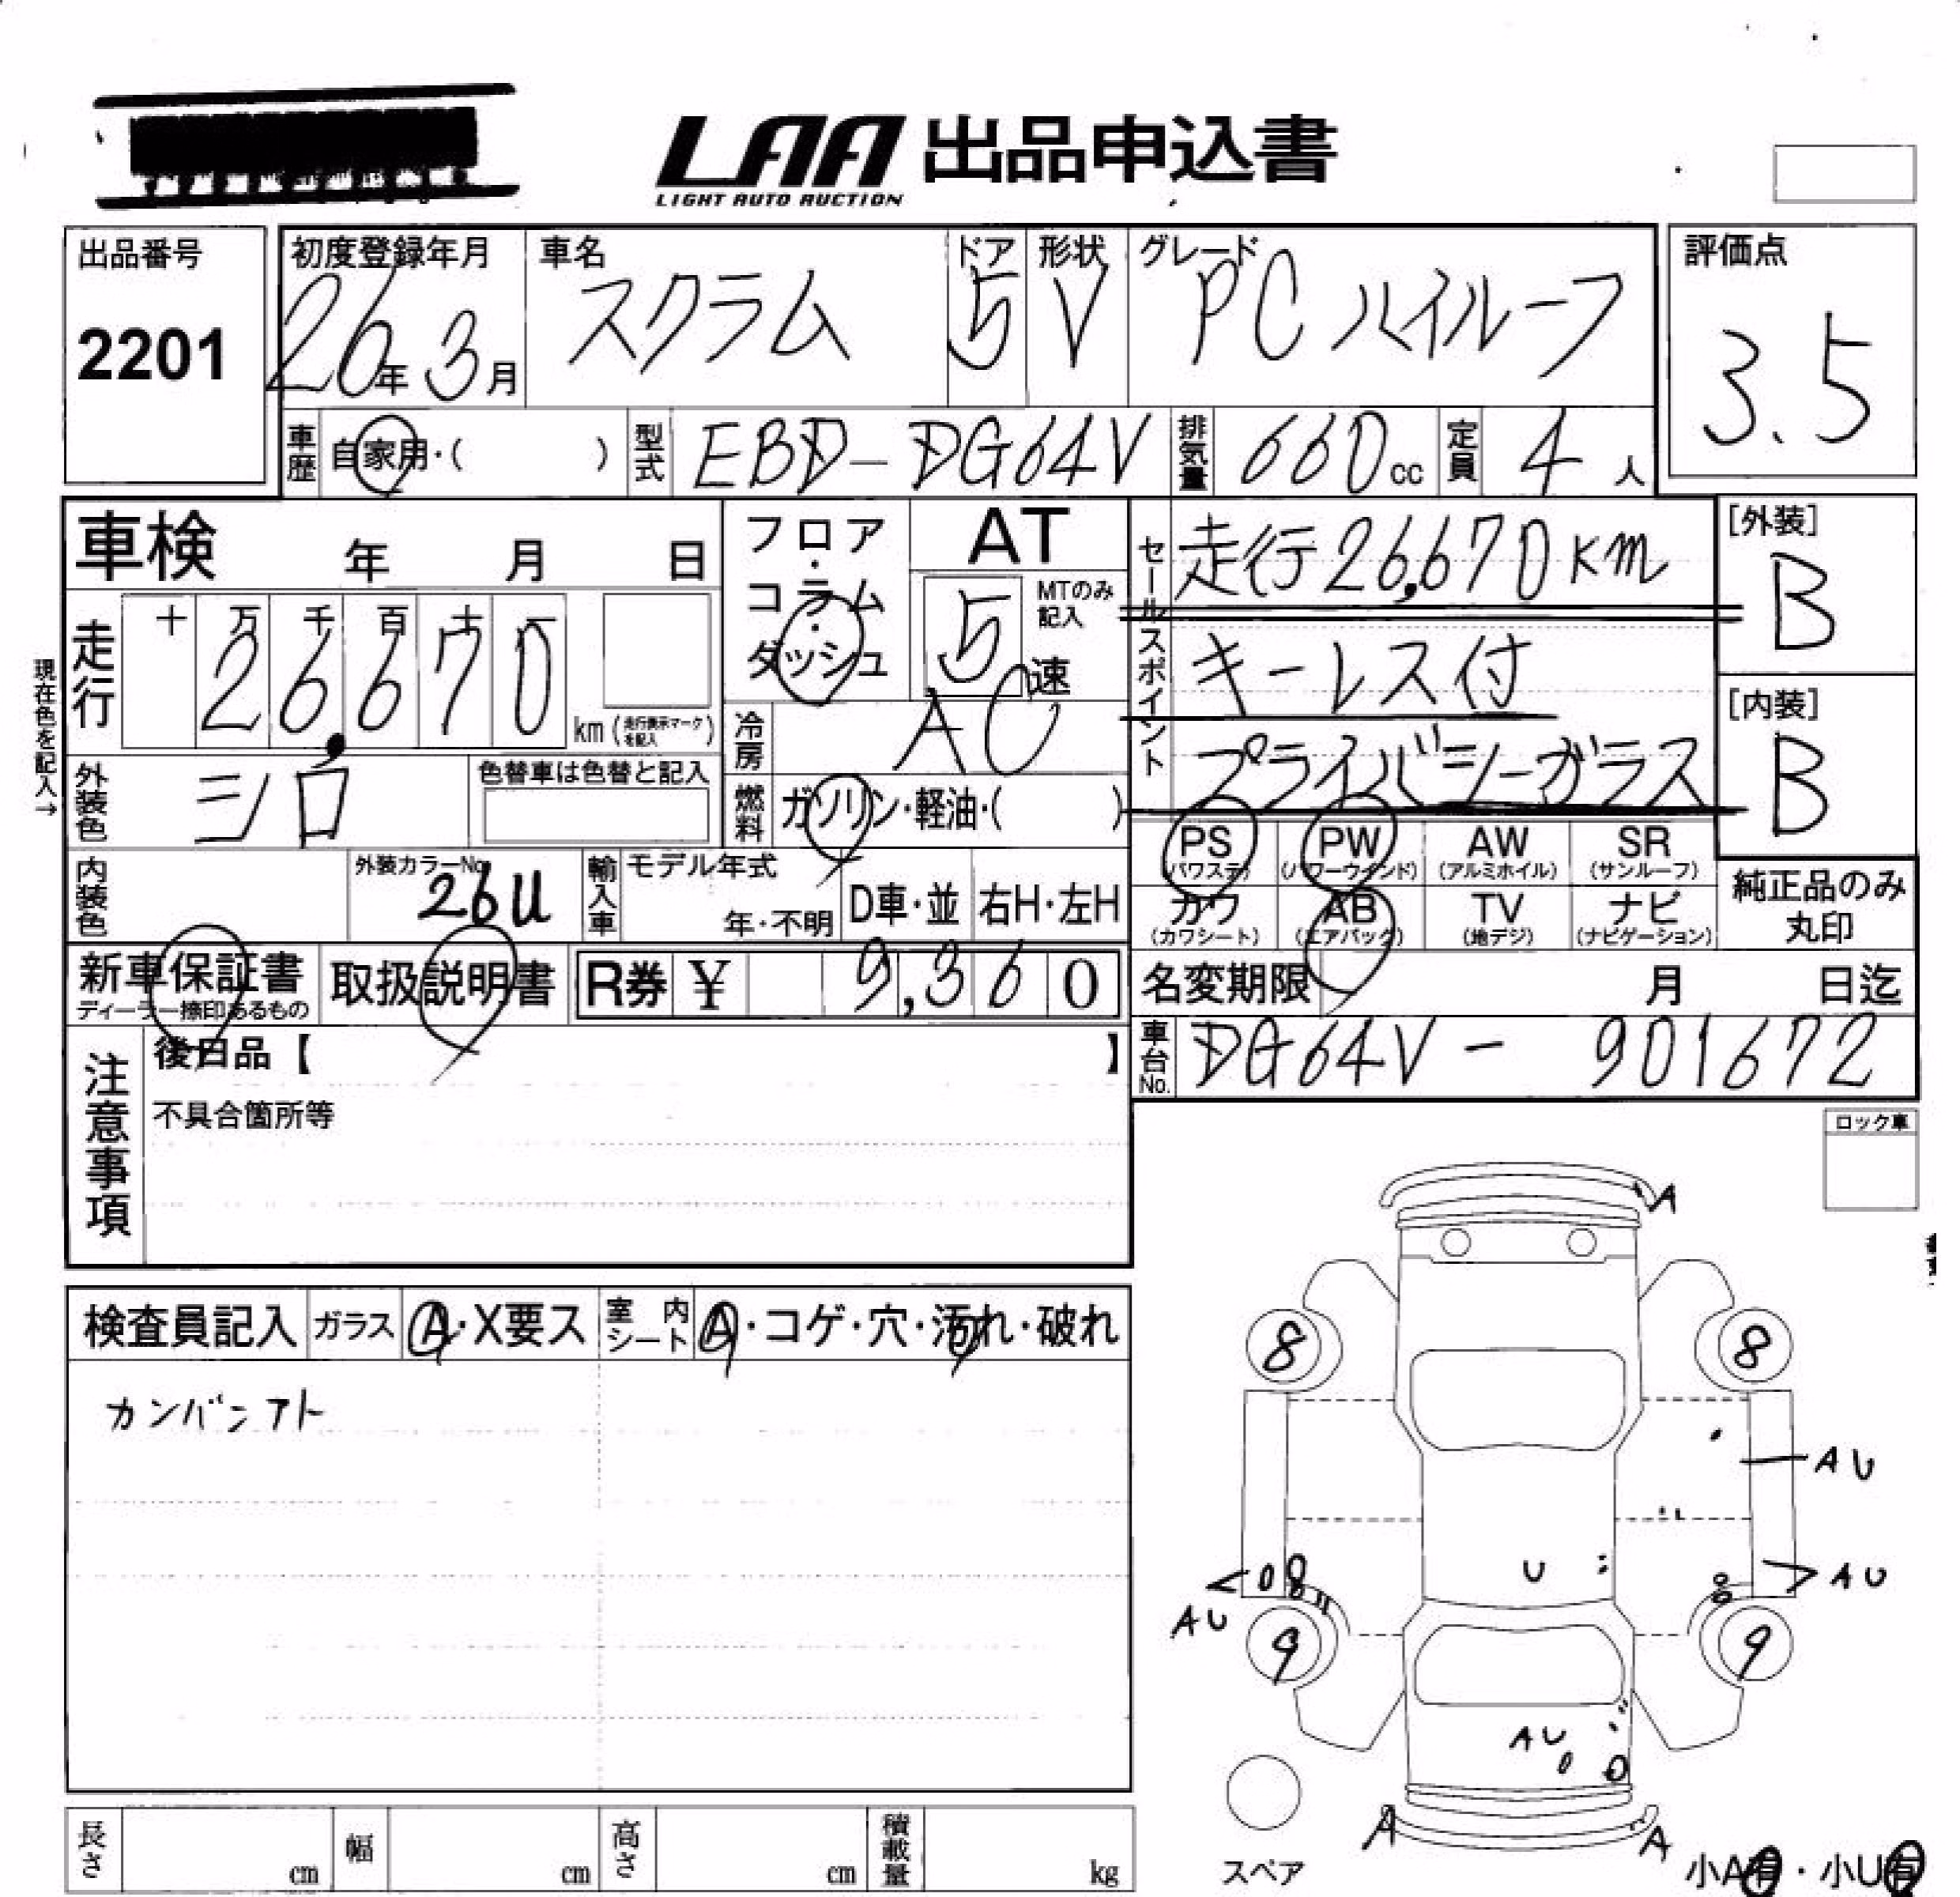 LAA 出品申込書
LIGHT AUTO AUCTION
出品番号
2201
初度登録年月
26年3月
車名
スクラム
ドア
5
形状
V
グレード
PC ハイルーフ
評価点
3.5
車歴 自家用・( )
型式 EBD-DG64V
排気量 660cc
定員 4人
車検 年 月 日
フロア・コラム・ダッシュ
AT
5速
MTのみ記入
セールスポイント
走行26,670km
キーレス付
プライバシーガラス
[外装]
B
[内装]
B
現在色を記入→
走行 十 万 千 百 十 一
26,670 km (走行表示マークを記入)
冷房 AC
外装色 シロ
色替車は色替と記入
燃料 ガソリン・軽油・( )
PS (パワステ)
PW (パワーウインド)
AW (アルミホイル)
SR (サンルーフ)
カワ (カワシート)
AB (エアバック)
TV (地デジ)
ナビ (ナビゲーション)
純正品のみ丸印
内装色
外装カラーNo. 26U
輸入車 モデル年式
年・不明
D車・並
右H・左H
新車保証書
ディーラー捺印あるもの
取扱説明書
R券 ¥ 9,360
名変期限 月 日迄
車台No. DG64V - 901672
注意事項
後日品【 】
不具合箇所等
ロック車
検査員記入
ガラス A・X要ス
室内シート A・コゲ・穴・汚れ・破れ
カンバンアト
A
8 8
AU
U
AU
AU
9 9
AU
A A
スペア
小A有・小U有
長さ cm
幅 cm
高さ cm
積載量 kg